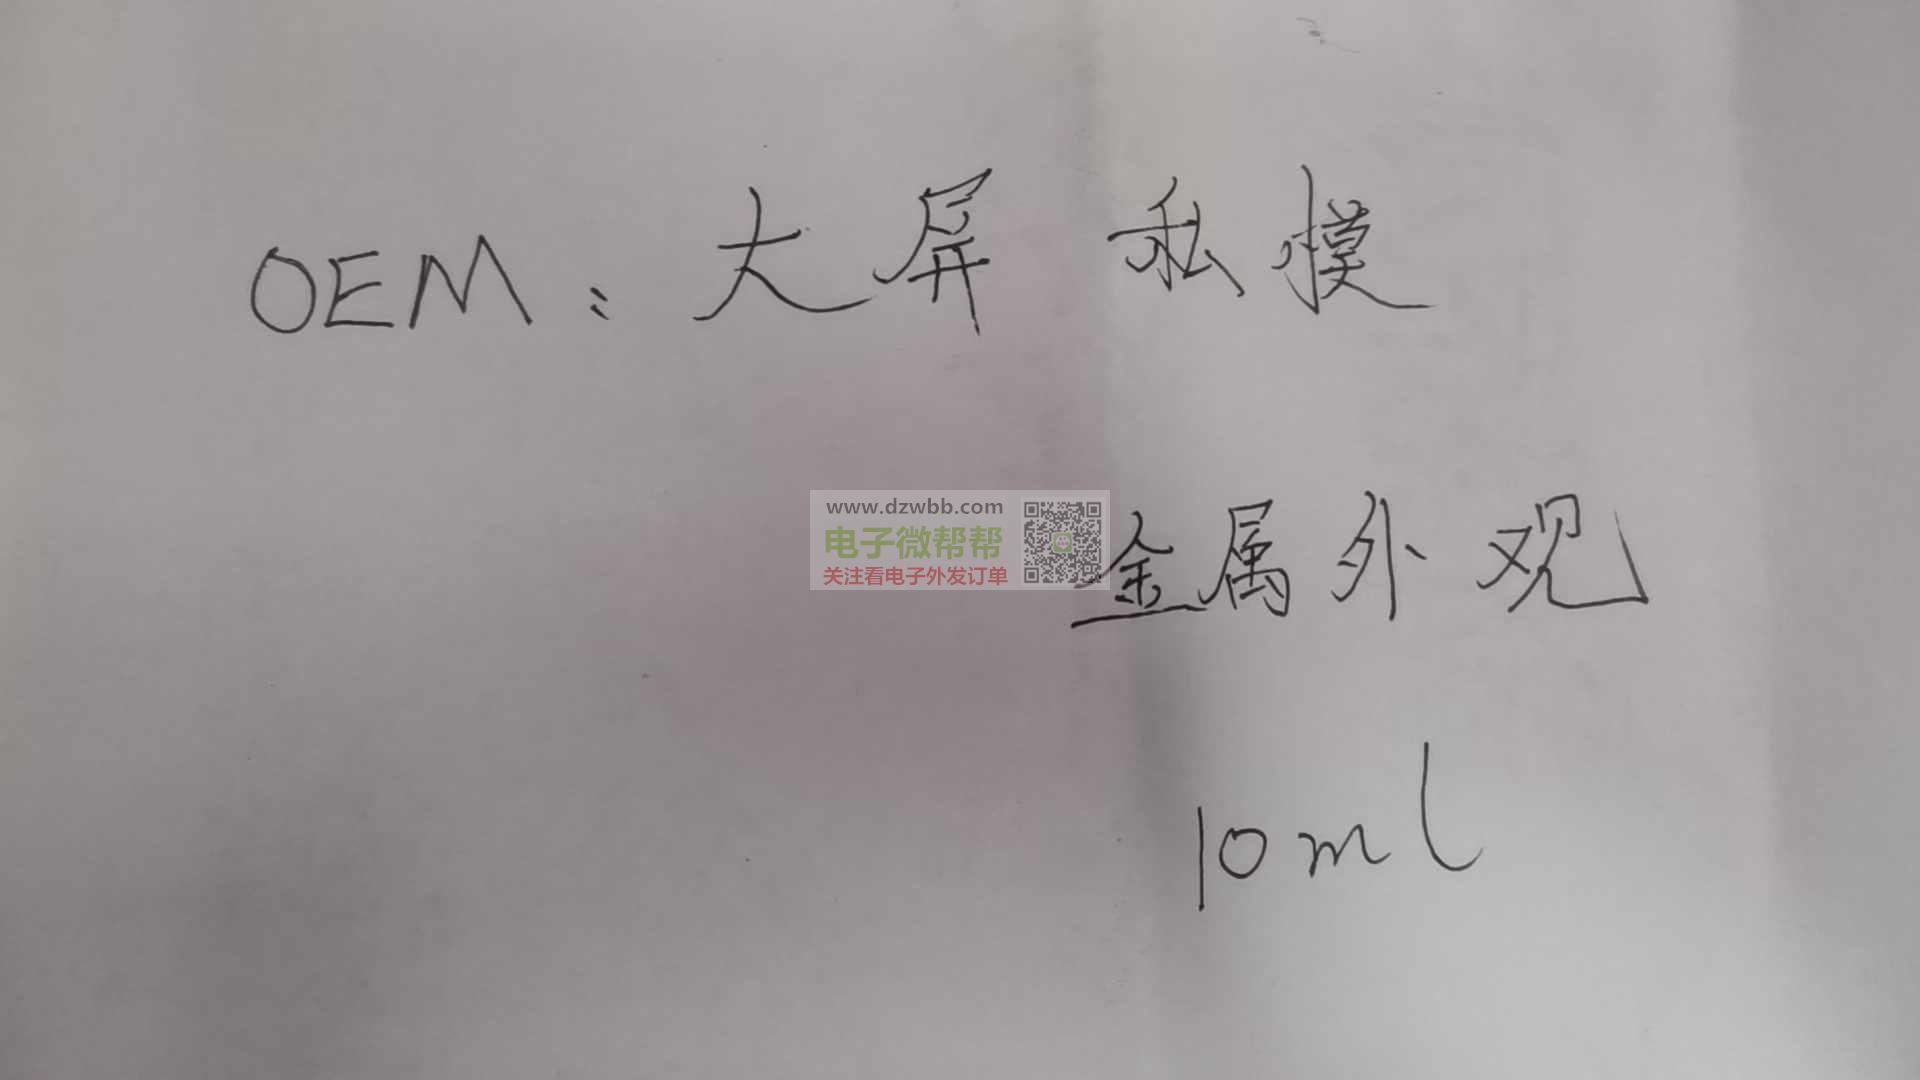 OEM：大屏 私模
www.dzwbb.com
电子微帮帮
关注看电子外发订单
金属外观
10ml